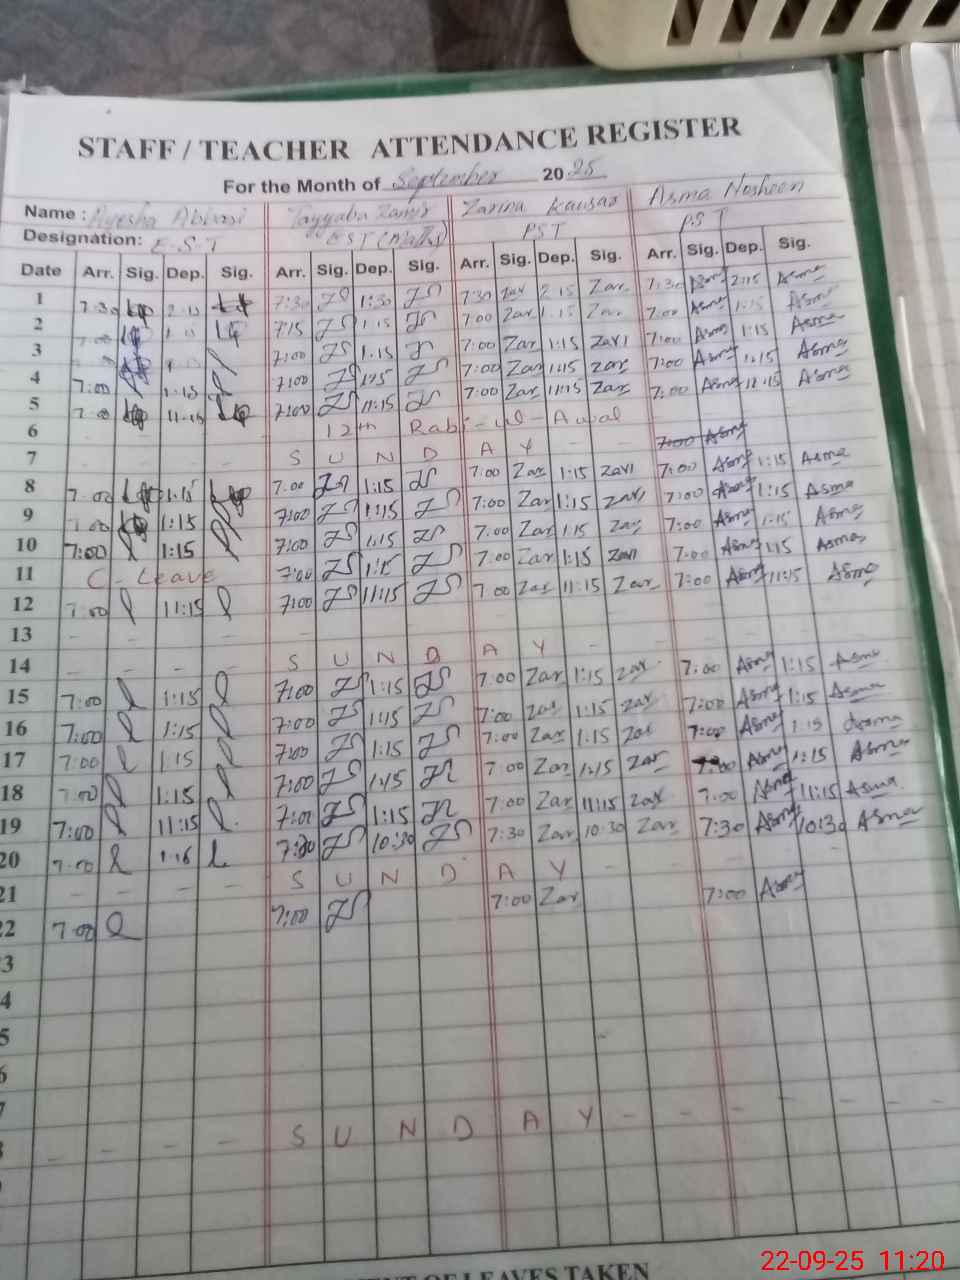 STAFF / TEACHER ATTENDANCE REGISTER
For the Month of September 2025
Name : Ayesha Abbasi Tayyaba Zamir Zarina Kausar Asma Nosheen
Designation: E.S.T EST (Maths) PST P.S.T
Date Arr. Sig. Dep. Sig. Arr. Sig. Dep. Sig. Arr. Sig. Dep. Sig. Arr. Sig. Dep. Sig.
1 7:30 2:15 7:30 1:30 7:30 Zar 2:15 Zar 7:30 Asma 2:15 Asma
2 7:00 7:15 1:15 7:00 Zar 1:15 Zar 7:00 Asma 1:15 Asma
3 7:00 1:15 7:00 Zar 1:15 Zari 7:00 Asma 1:15 Asma
4 7:00 1:15 7:00 1:15 7:00 Zar 1:15 Zar 7:00 Asma 1:15 Asma
5 7:00 11:15 7:00 11:15 7:00 Zar 11:15 Zar 7:00 Asma 11:15 Asma
6 12th Rabi-ul-Awal
7 - - - - S U N D A Y
8 7:00 1:15 7:00 1:15 7:00 Zar 1:15 Zari 7:00 Asma 1:15 Asma
9 7:00 1:15 7:00 1:15 7:00 Zar 1:15 Zari 7:00 Asma 1:15 Asma
10 7:00 1:15 7:00 1:15 7:00 Zar 1:15 Zar 7:00 Asma 1:15 Asma
11 C - Leave 7:00 1:15 7:00 Zar 1:15 Zari 7:00 Asma 1:15 Asma
12 7:00 11:15 7:00 11:15 7:00 Zar 11:15 Zar 7:00 Asma 11:15 Asma
13 - - - -
14 - - - - S U N D A Y
15 7:00 1:15 7:00 1:15 7:00 Zar 1:15 Zar 7:00 Asma 1:15 Asma
16 7:00 1:15 7:00 1:15 7:00 Zar 1:15 Zar 7:00 Asma 1:15 Asma
17 7:00 1:15 7:00 1:15 7:00 Zar 1:15 Zar 7:00 Asma 1:15 Asma
18 7:00 1:15 7:00 1:15 7:00 Zar 1:15 Zar 7:00 Asma 1:15 Asma
19 7:00 11:15 7:00 1:15 7:00 Zar 11:15 Zar 7:00 Asma 11:15 Asma
20 7:00 1:16 7:30 10:30 7:30 Zar 10:30 Zar 7:30 Asma 10:30 Asma
21 - - - - S U N D A Y
22 7:00 7:00 7:00 Zar 7:00 Asma
3
4
5
6
7
8 - - - - S U N D A Y - - - - - -
OF LEAVES TAKEN
22-09-25 11:20